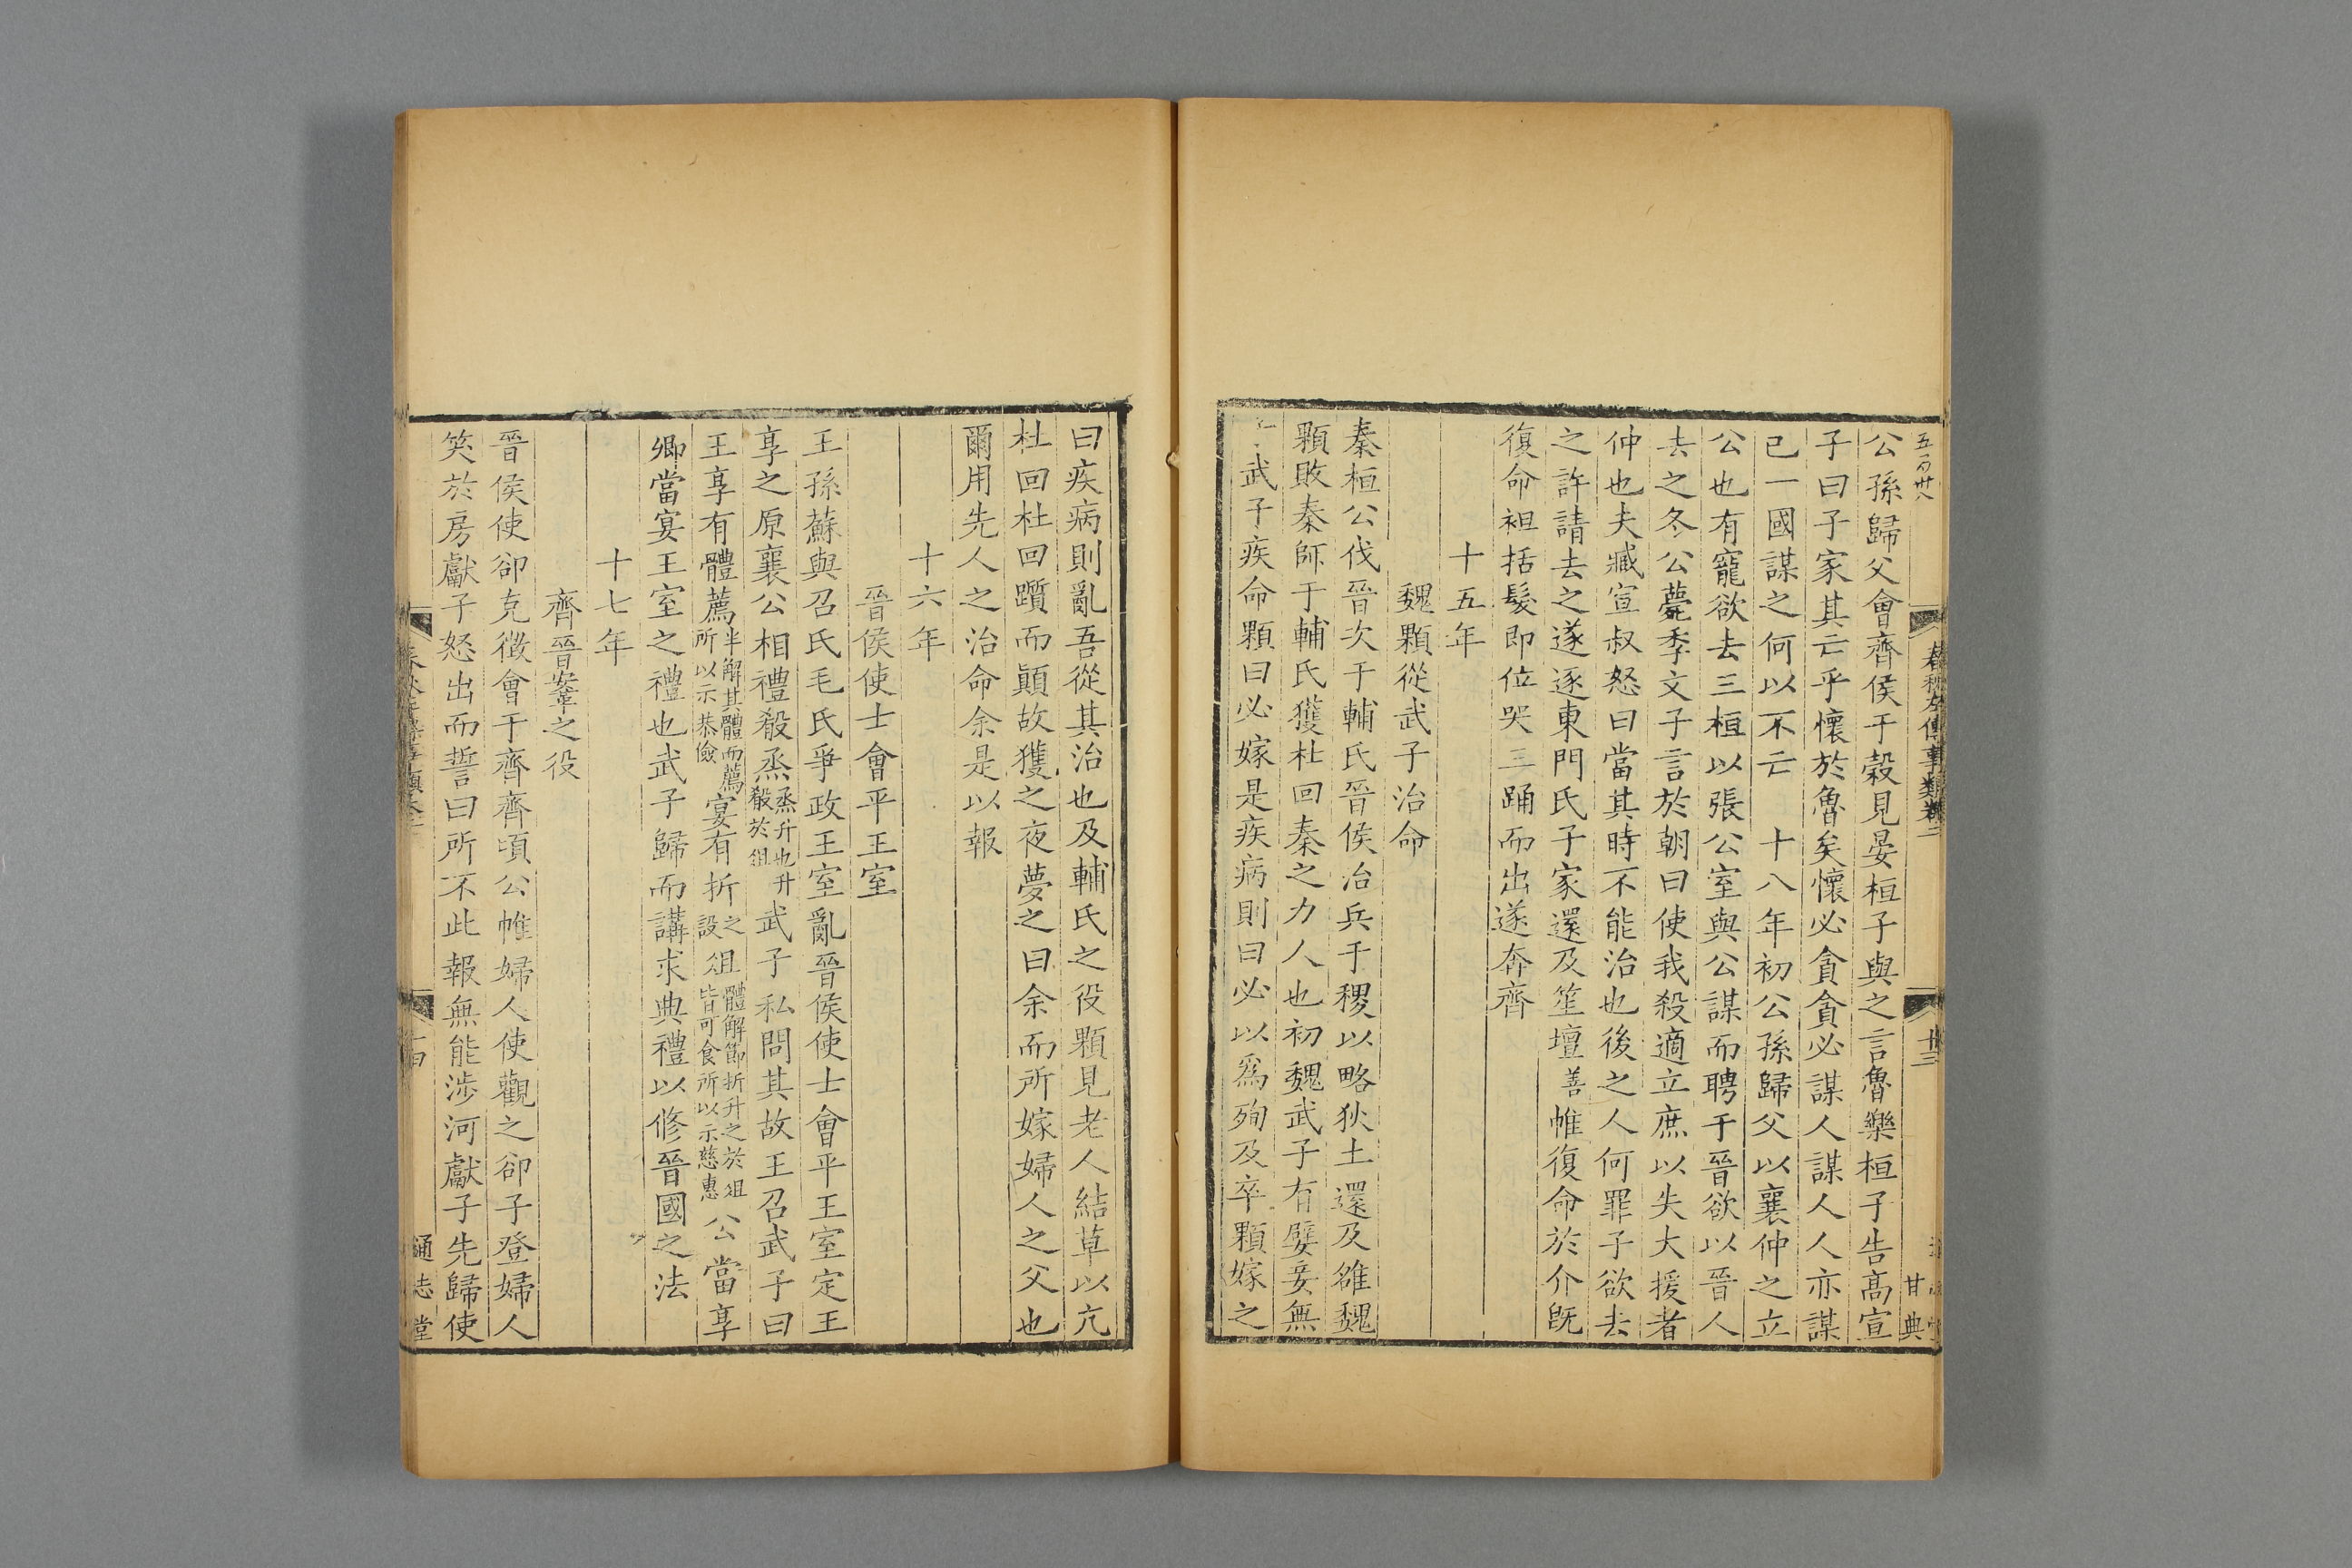 五百卅八
春秋左傳事類卷二
廿三
甘典
公孫歸父會齊侯于榖見晏桓子與之言魯樂桓子告高宣
子曰子家其亡乎懷於魯矣懷必貪貪必謀人謀人人亦謀
已一國謀之何以不亡　十八年初公孫歸父以襄仲之立
公也有寵欲去三桓以張公室與公謀而聘于晉欲以晉人
去之冬公薨季文子言於朝曰使我殺適立庶以失大援者
仲也夫臧宣叔怒曰當其時不能治也後之人何罪子欲去
之許請去之遂逐東門氏子家還及笙壇善帷復命於介旣
復命袒括髮即位哭三踊而出遂奔齊
十五年
魏顆從武子治命
秦桓公伐晉次于輔氏晉侯治兵于稷以略狄土還及雒魏
顆敗秦師于輔氏獲杜回秦之力人也初魏武子有嬖妾無
武子疾命顆曰必嫁是疾病則曰必以爲殉及卒顆嫁之
曰疾病則亂吾從其治也及輔氏之役顆見老人結草以亢
杜回杜回躓而顚故獲之夜夢之曰余而所嫁婦人之父也
爾用先人之治命余是以報
十六年
晉侯使士會平王室
王孫蘇與召氏毛氏爭政王室亂晉侯使士會平王室定王
享之原襄公相禮殽烝烝升也升殽於俎武子私問其故王召武子曰
王享有體薦半解其體而薦所以示恭儉宴有折之設俎體解節折升之於俎皆可食所以示慈惠公當享
卿當宴王室之禮也武子歸而講求典禮以修晉國之法
十七年
齊晉鞌之役
晉侯使郤克徵會于齊齊頃公帷婦人使觀之郤子登婦人
笑於房獻子怒出而誓曰所不此報無能涉河獻子先歸使
通志堂